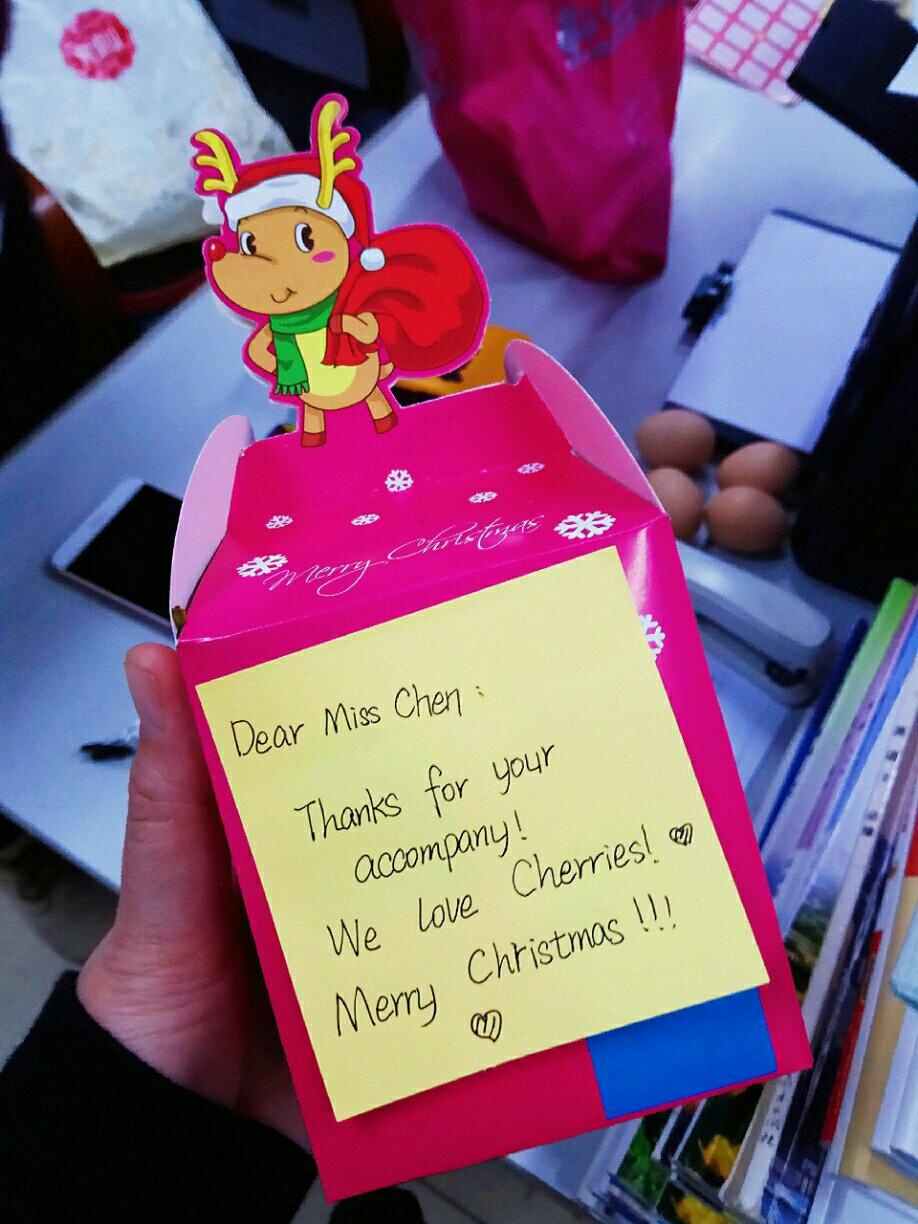 Merry Christmas
Dear Miss Chen:
Thanks for your
accompany!
We love Cherries!
Merry Christmas!!!